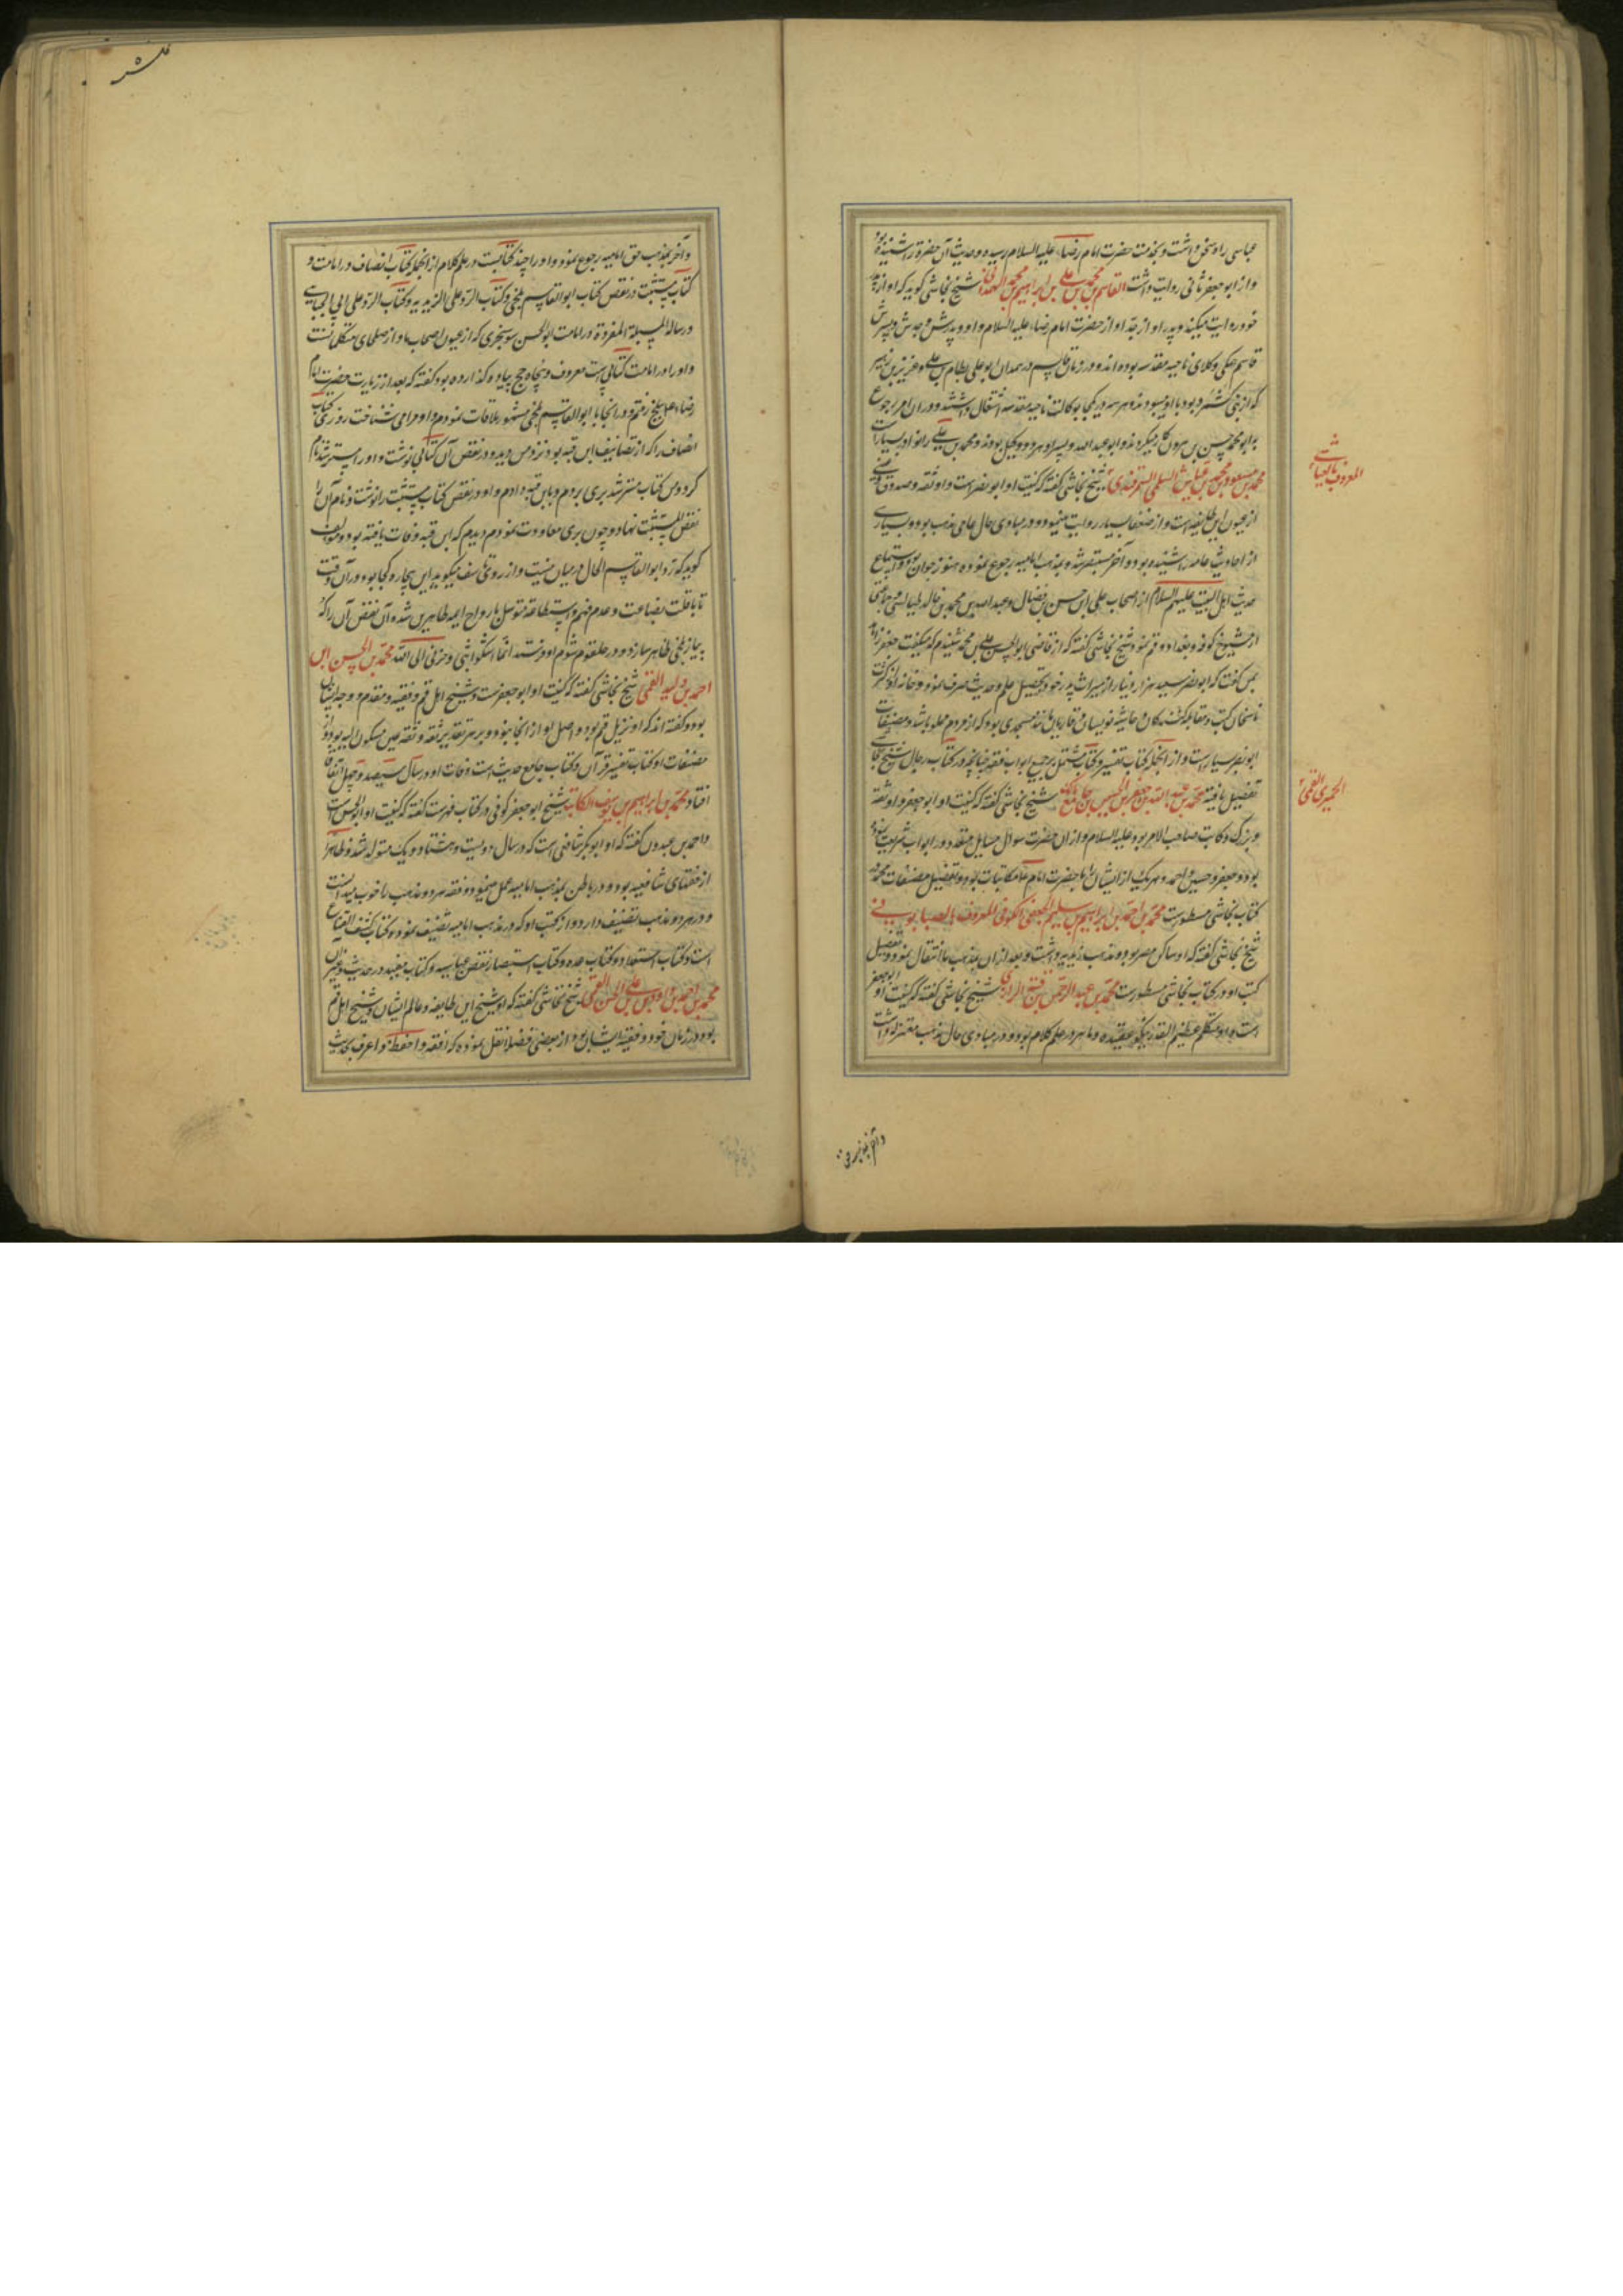 عباسی را و سخن داشت و بخدمت حضرت امام رضا علیه السلام رسیده و حدیث آن حضرة را شنیده بود
و از ابو جعفر ثانی روایت داشت القاسم بن محمد بن علی بن ابراهیم بن محمد الهمدانی شیخ نجاشی گوید که او از پدر
خود روایت میکند و پدر او از جد او از حضرت امام رضا علیه السلام و او و پدرش و جدش و پسرش
قاسم همکی وکلای ناحیه مقدسه بوده اند و در زمان قاسم در همدان ابو علی بسطام بن علی و عزیز بن زهیر
که از بنی کشمرد بود با او میبودند و هر سه در یکجا بوکالت ناحیه مقدسه اشتغال داشتند و در ان امر رجوع
به ابو محمد حسن بن هرون کار میکردند و ابو عبد الله و پسر او هر دو وکیل بودند و محمد بن علی را نوادر بسیارست
محمد بن مسعود بن محمد بن عیاش السلمی السمرقندی شیخ نجاشی گفته که کنیت او ابو نصر است و او ثقه و صدوق
المعروف بالعیاشی
از عیون این طایفه است و از ضعفا بسیار روایت مینمود و در مبادی حال عامی مذهب بود و بسیاری
از احادیث عامه را شنیده بود و آخر مستبصر شده و بمذهب امامیه رجوع نموده هنوز جوان بود و استماع
حدیث اهل البیت علیهم السلام از اصحاب علی ابن حسن بن فضال و عبد الله بن محمد بن خالد طیالسی و جماعتی
از شیوخ کوفه و بغداد و قم نمود شیخ نجاشی گفته که از قاضی ابو الحسن علی بن محمد شنیدم که میگفت جعفر زاهد
بمن گفت که ابو نصر سیصد هزار دینار از میراث پدر خود بتحصیل علم و حدیث صرف نمود و خانه او از کثرت
ناسخان کتب و مقابله کنندکان و حاشیه نویسان و قاریان مانند مسجدی بود که از مردم مملو باشد و مصنفات
ابو نصر بسیار است و از انجمله کتاب تفسیر و کتاب مشتمل بر جمیع ابواب فقه چنانچه در کتاب رجال شیخ نجاشی
تفصیل یافته محمد بن عبد الله بن جعفر بن الحسین بن جامع بن مالک شیخ نجاشی گفته که کنیت او ابو جعفر و او ثقه
الحمیری القمی
بود و جعفر و حسین و احمد و هریک از ایشان را با حضرت امام مکاتبات بود و تفصیل مصنفات محمد در
کتاب نجاشی مسطورست محمد بن احمد بن ابراهیم بن سلیم الجعفی الکوفی المعروف بالصابونی
شیخ نجاشی گفته که او ساکن مصر بود و مذهب زیدیه داشت و بعد از ان بمذهب ما انتقال نمود و تفصیل
کتب او در کتاب نجاشی مسطورست محمد بن عبد الرحمن بن قبة الرازی شیخ نجاشی گفته که کنیت او ابو جعفر
است و او متکلم عظیم القدر نیکو عقیده و ماهر در علم کلام بود و در مبادی حال مذهب معتزله داشت
و آخر بمذهب حق امامیه رجوع نمود و او را چند کتابست در علم کلام از انجمله کتاب انصاف در امامت و
کتاب مستثبت در نقض کتاب ابو القاسم بلخی و کتاب الرد علی الزیدیه و کتاب الرد علی ابی علی الجبائی
و رساله المسئلة المفردة در امامت ابو الحسن سوسنجردی که از عیون اصحاب ما و از صلحای متکلمانست
و او را در امامت کتابی است معروف و پنجاه حج پیاده گذارده بود گفته که بعد از زیارت حضرت امام
رضا به بلخ رفتم و در انجا با ابو القاسم بلخی مشهور ملاقات نمودم و او مرا می شناخت روزی کتاب
انصاف را که از تصانیف ابن قبه بود نزد من دید و در نقض آن کتابی نوشت و او را مسترشد نام
کرد و من کتاب مسترشد بری بردم و بابن قبه دادم و او در نقض کتاب مستثبت را نوشت و نام آن را
نقض المستثبت نهاد و چون بری معاودت نمودم دیدم که ابن قبه وفات یافته بود و مولف
گوید که زد ابو القاسم الحال در میان نیست و از روی تأسف میگوید این بیچاره کجا بود در آن وقت
تا با قلت بضاعت و عدم فهم و استطاعة متوسل بارواح ایمه طاهرین شده آن نقض آن را که
احمد بن ولید القمی شیخ نجاشی گفته که کنیت او ابو جعفرست و شیخ اهل قم و فقیه و مقدم و وجه ایشان
بود و گفته اند که او نزیل قم بود و اصل او از انجا نبود و بر هر تقدیر ثقه و ثقه عین مسکون الیه بود و از
مصنفات او کتاب تفسیر قرآن و کتاب جامع حدیث است وفات او در سال سیصد و چهل اتفاق
افتاد محمد بن ابراهیم بن یوسف الکاتب شیخ ابو جعفر کوفی در کتاب فهرست گفته که کنیت او ابو الحسن است
و احمد بن عبدون گفته که او ابو بکر شافعی است که در سال دویست و هشتاد و یک متولد شد و ظاهرا
از فقهای شافعیه بود و در باطن بمذهب امامیه عمل مینمود و فقه هر دو مذهب را خوب میدانست
و در هر دو مذهب تصنیف دارد و از کتب او که در مذهب امامیه تصنیف نموده کتاب کشف القناع
است و کتاب استعداد و کتاب عده و کتاب استبصار و نقض عباسیه و کتاب مفید در حدیث و غیر آن
محمد بن احمد بن داود بن علی بن الحسن القمی شیخ نجاشی گفته که او شیخ این طایفه و عالم ایشان و شیخ اهل قم
بود در زمان خود و فقیه ایشان بود و از بعضی فضلا نقل نموده که افقه و احفظ و اعرف بحدیث